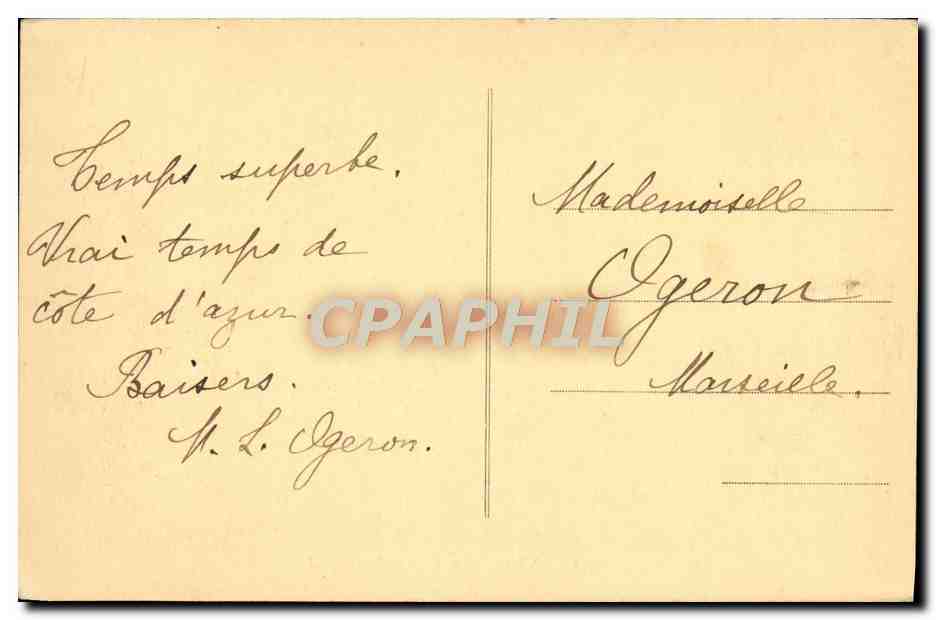 Temps superbe.
Vrai temps de
côte d'azur.
Baisers.
M. L. Ogeron.
Mademoiselle
Ogeron
Marseille.
CPAPHIL